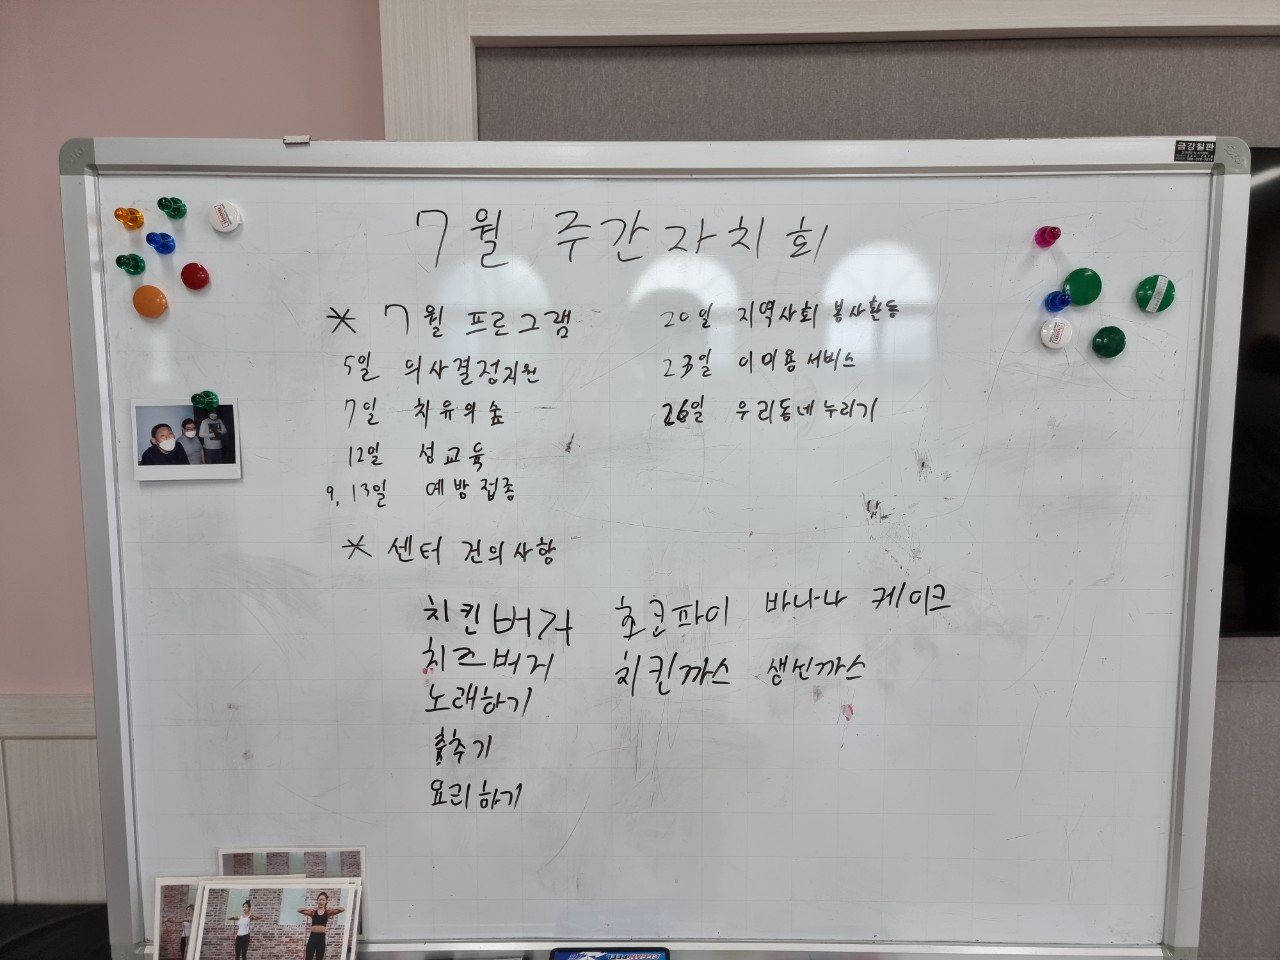 금강칠판
7월 주간자치회
* 7월 프로그램
5일 의사결정지원
7일 치유의숲
12일 성교육
9, 13일 예방접종
20일 지역사회 봉사활동
23일 이미용서비스
26일 우리동네누리기
* 센터 건의사항
치킨버거 초코파이 바나나 케이크
치즈버거 치킨까스 생선까스
노래하기
춤추기
요리하기